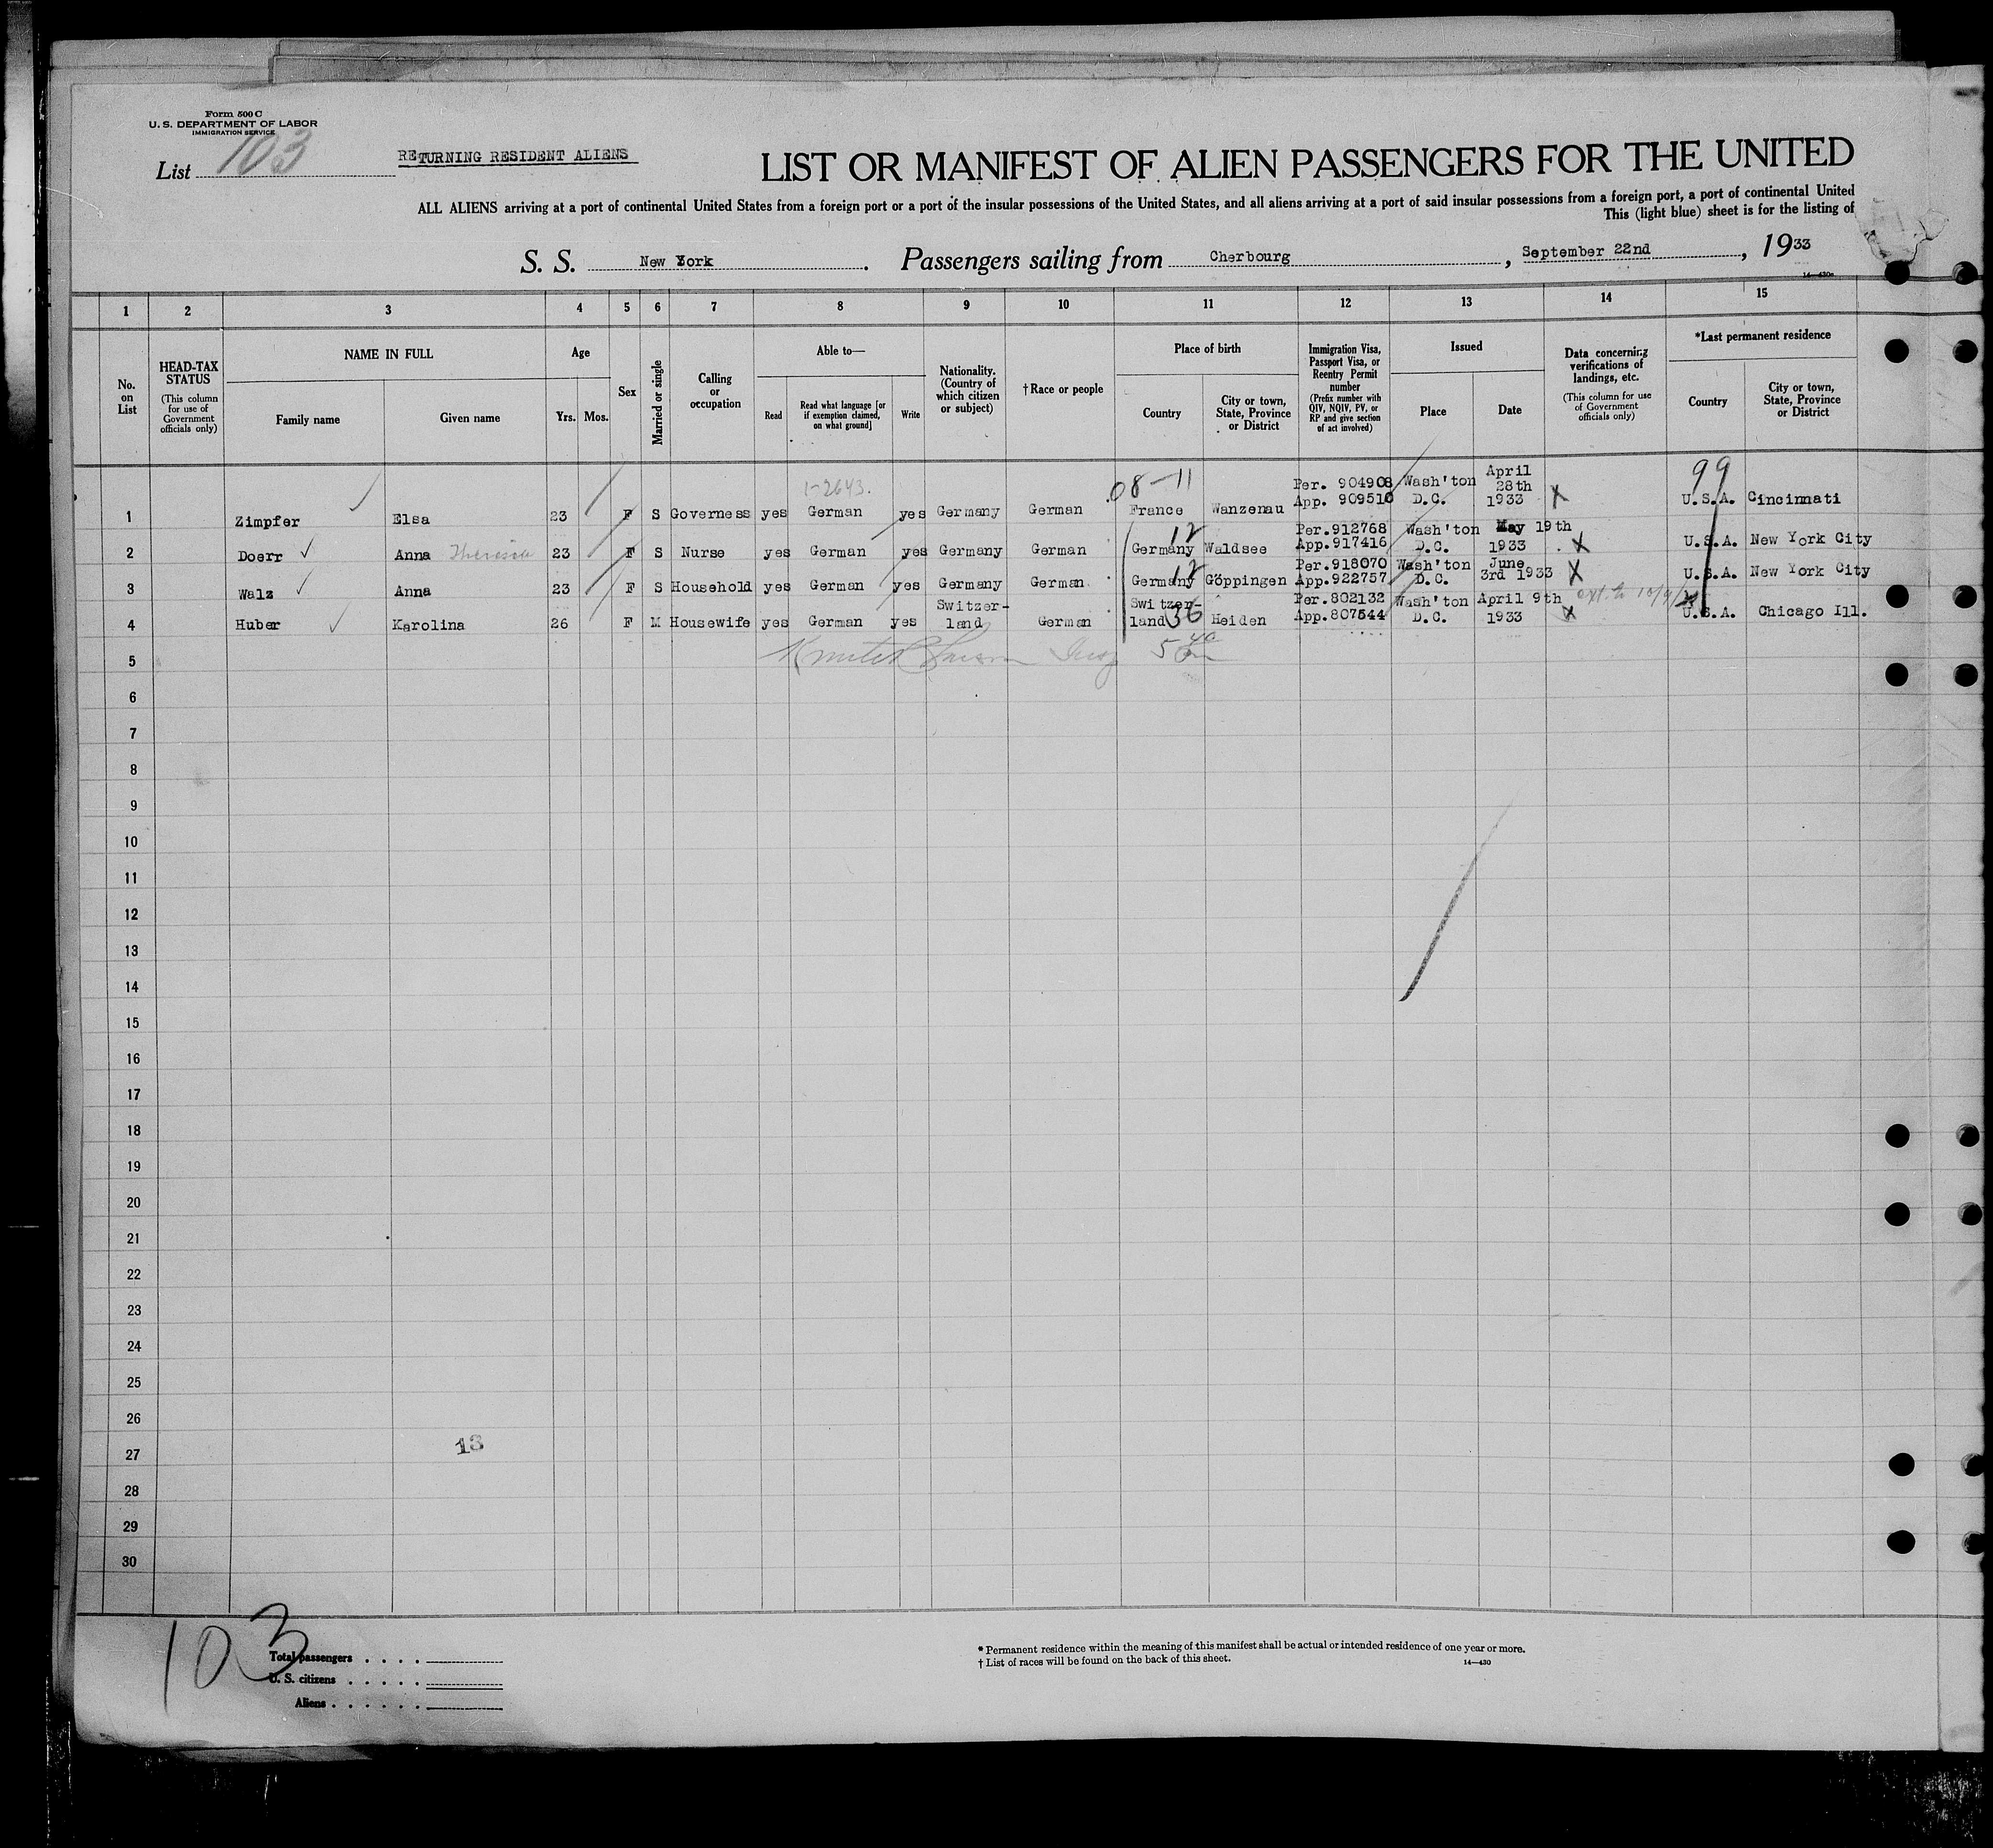 Form 500 C
U. S. DEPARTMENT OF LABOR
IMMIGRATION SERVICE
List 103
RETURNING RESIDENT ALIENS
LIST OR MANIFEST OF ALIEN PASSENGERS FOR THE UNITED
ALL ALIENS arriving at a port of continental United States from a foreign port or a port of the insular possessions of the United States, and all aliens arriving at a port of said insular possessions from a foreign port, a port of continental United
This (light blue) sheet is for the listing of
S. S. New York. Passengers sailing from Cherbourg, September 22nd, 1933
14—430a
1 2 3 4 5 6 7 8 9 10 11 12 13 14 15
No. on List
HEAD-TAX STATUS (This column for use of Government officials only)
NAME IN FULL Family name Given name
Age Yrs. Mos.
Sex
Married or single
Calling or occupation
Able to— Read Read what language [or if exemption claimed, on what ground] Write
Nationality. (Country of which citizen or subject)
†Race or people
Place of birth Country City or town, State, Province or District
Immigration Visa, Passport Visa, or Reentry Permit number (Prefix number with QIV, NQIV, PV, or RP and give section of act involved)
Issued Place Date
Data concerning verifications of landings, etc. (This column for use of Government officials only)
*Last permanent residence Country City or town, State, Province or District
1-2643. 08-11 99
1 Zimpfer Elsa 23 F S Governess yes German yes Germany German France Wanzenau Per. 904908 App. 909510 Wash'ton D.C. April 28th 1933 X U.S.A. Cincinnati
2 Doerr Anna Theresia 23 F S Nurse yes German yes Germany German Germany 12 Waldsee Per.912768 App.917416 Wash'ton D.C. May 19th 1933 X U.S.A. New York City
3 Walz Anna 23 F S Household yes German yes Germany German Germany 12 Göppingen Per.918070 App.922757 Wash'ton D.C. June 3rd 1933 X U.S.A. New York City
4 Huber Karolina 26 F M Housewife yes German yes Switzer-land German Switzer-land 36 Heiden Per.802132 App.807544 Wash'ton D.C. April 9th 1933 X U.S.A. Chicago Ill.
5
6
7
8
9
10
11
12
13
14
15
16
17
18
19
20
21
22
23
24
25
26
27
13
28
29
30
103
Total passengers . . . .
U. S. citizens . . . . .
Aliens . . . . . .
* Permanent residence within the meaning of this manifest shall be actual or intended residence of one year or more.
† List of races will be found on the back of this sheet.
14—430